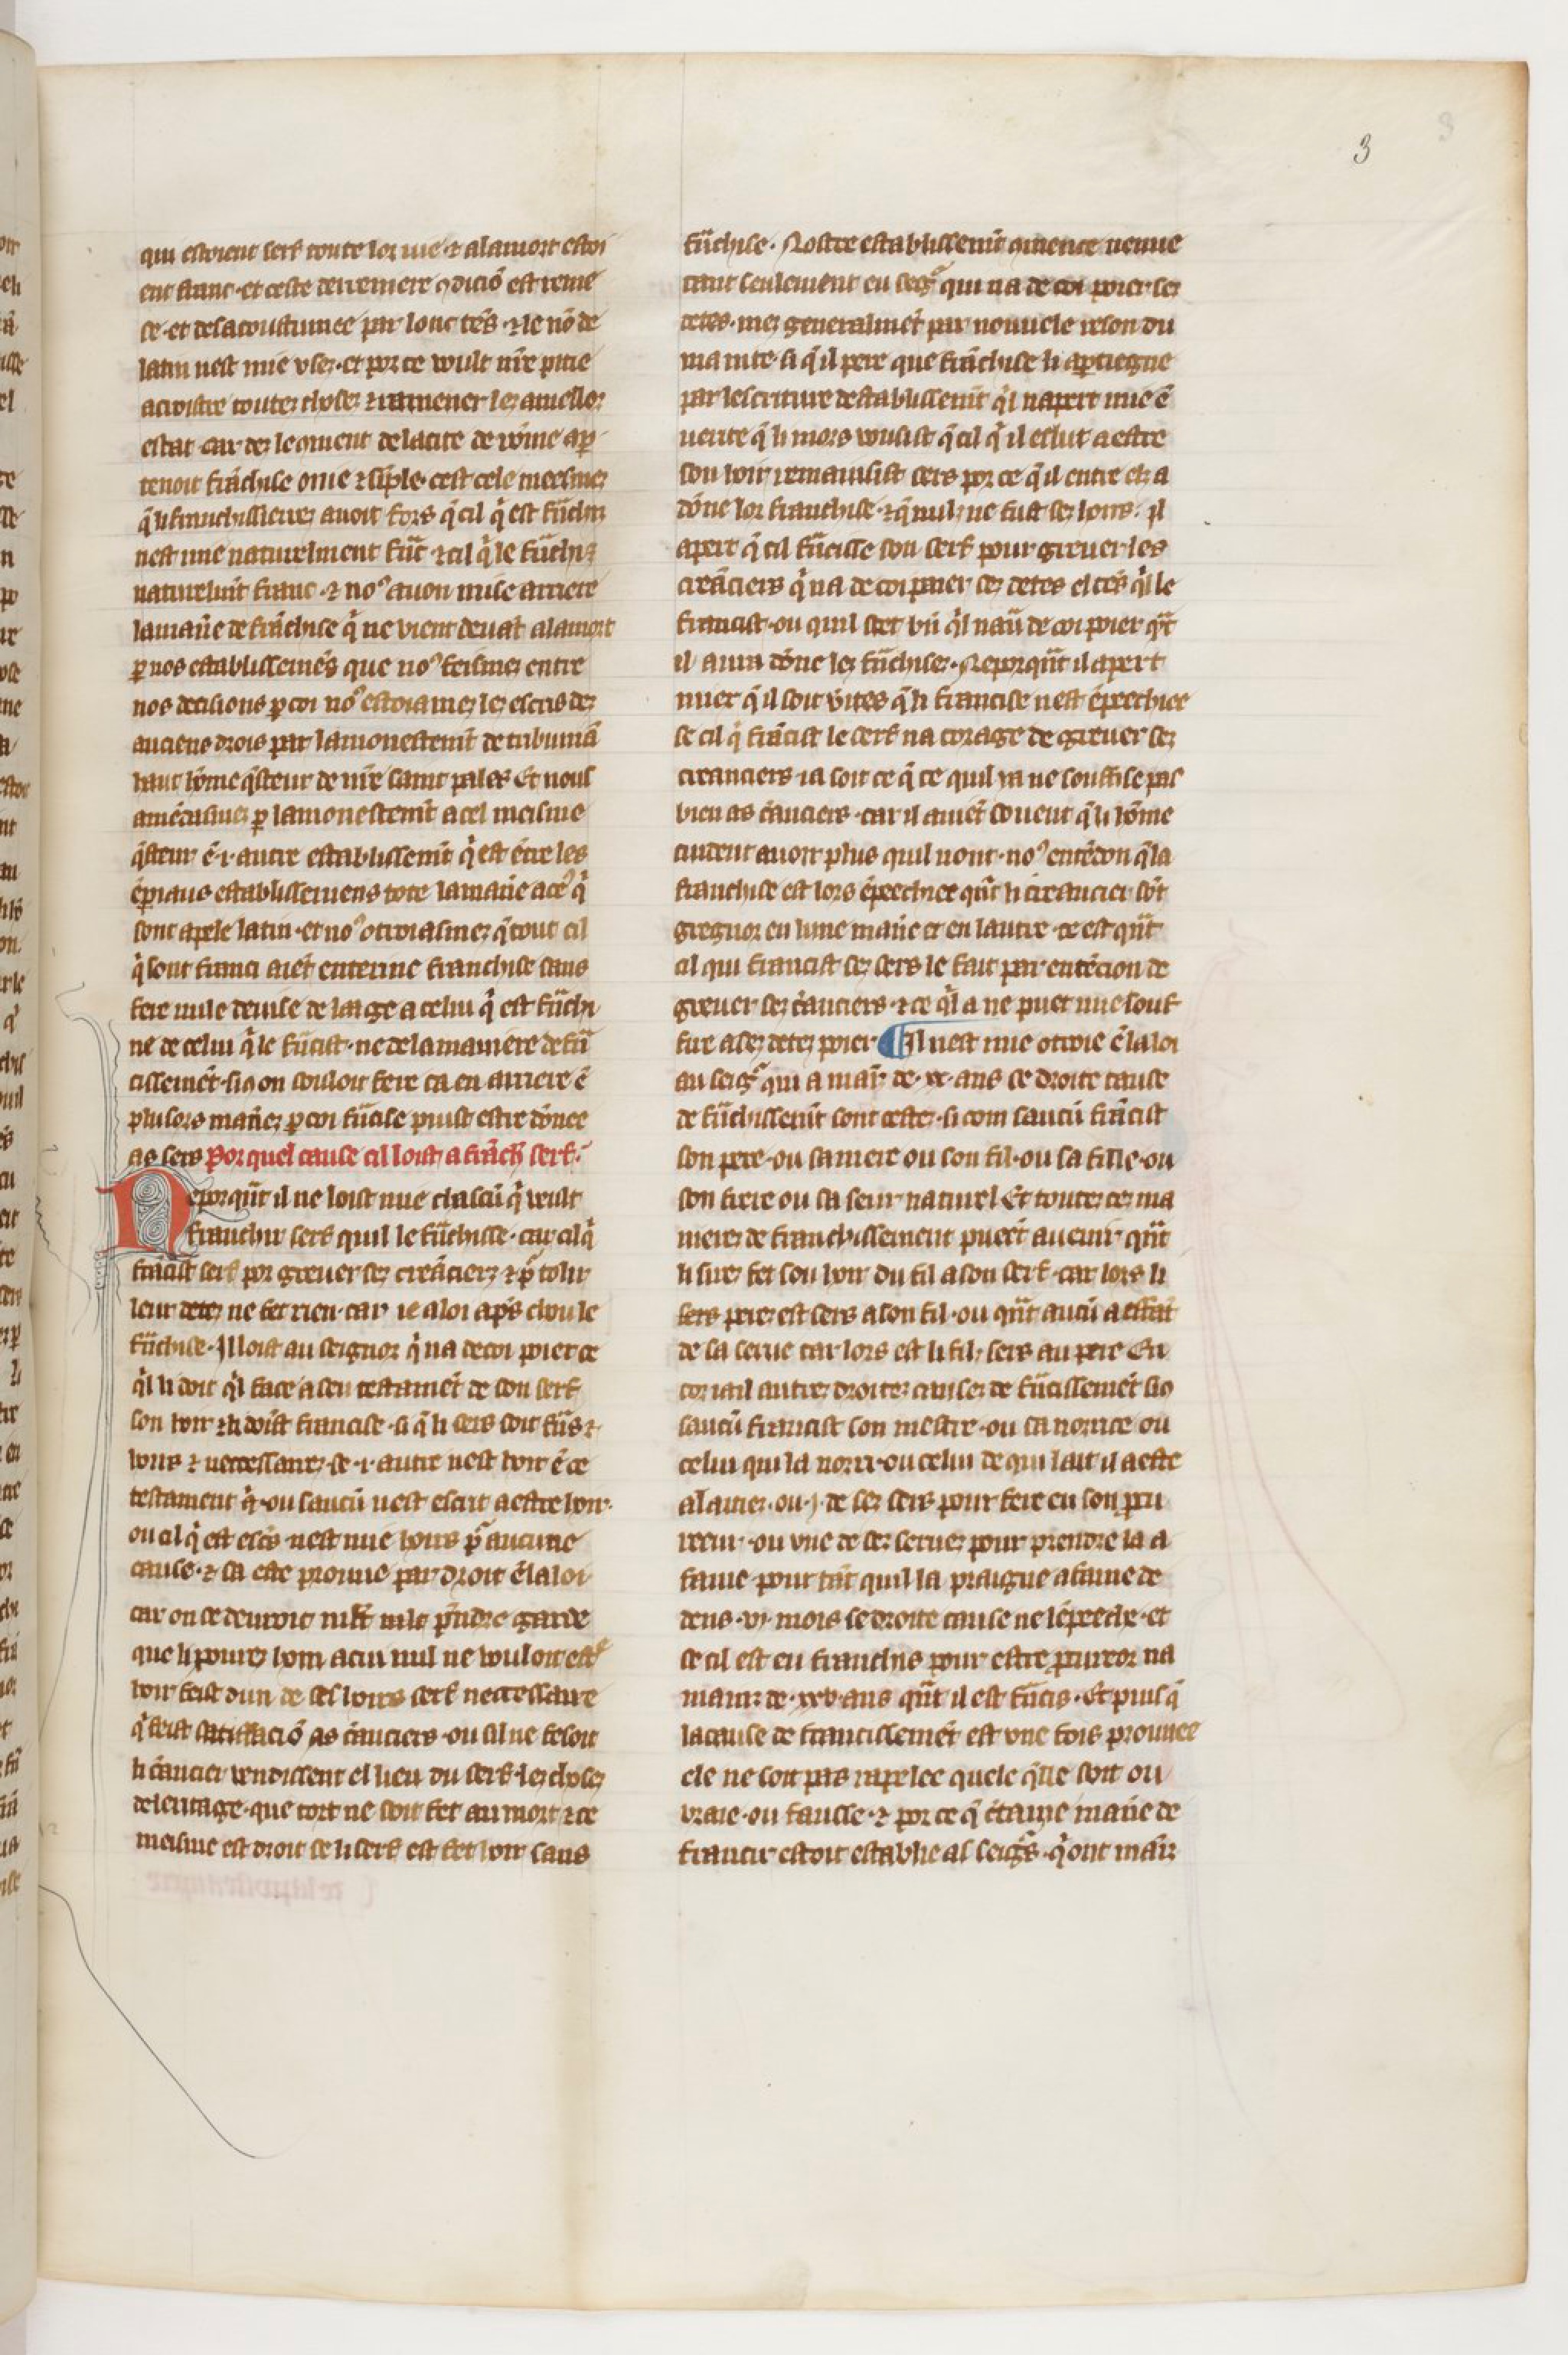 3
qui estoient serf toute lor vie ⁊ alamort estoi
ent franc · et ceste derreniere ꝯdiciō est reme
se · et desacoustumee par lonc tēs · ⁊ le nō de
latin nest mie vsez · et por ce voult nr̄e pitie
acroistre toutes choses ⁊ ramener les a meillor
estat · car des le ꝯment de la cite de rōme aꝑ
tenoit frāchise onie ⁊ sīple · cest cele meesmes
q̄ li franchissierres auoit fors q̄ cil qͥ est frāchis
nest mie naturelment frāc ⁊ cil qͥ le frāchist
naturelmt̄ franc · ⁊ noꝰ auon mise arriere
la manēe de frāchise qͥ ne vient deuāt alamort
ꝑ nos establissemēs que noꝰ feismes entre
nos decisions ꝑ coi noꝰ estoiames les escris des
anciens drois par lamonestemt̄ de tribuniā
haut hōme q̄steur de nr̄e saint pales Et nous
amēdismes ꝑ lamonestemt̄ a cel meisme
q̄steur ē ·i· autre establissemt̄ qͥ est ētre les
ēperiaus establissemens tote la manēe a ceꝰ qͥ
sont apele latin · et noꝰ otroiasmes q̄ tout cil
qͥ sont franci aiēt enterine franchise sans
fere nule deuise de laage a celui qͥ est frāchi
ne de celui qͥ le frācist · ne de la maniere de frā
cissemēt · sicō on souloit fere ca en arriere ē
plusors manēes ꝑ coi frācise puist estre dōnee
as sers Por quel cause cil loist a frāchir serf ·
Neporquāt il ne loist mie chascū qͥ veult
franchir serf quil le frāchisse · car cil qͥ
frācist serf por greuer ses creāciers ⁊ pͬ tolir
leur detes ne fet rien · car le a loi apͤs chou le
frāchise · Il loist au seignor qͥ na de coi poier ce
qͥl li doit qͥl face a sen testamēt de son serf
son hoir ⁊ li doīst francise · si q̄ li sers soit frās ⁊
hoirs ⁊ neccessaires · se ·i· autre nest hoir ē ce
testament qͥ · ou saucū nest escrit a estre hoir ·
ou cil qͥ est escs̄ nest mie hoirs pͬ aucune
cause · ⁊ sa este prouue par droit ē la loi
car on se deuroit prēdre garde
que li poures hom a cui nul ne vouloit estͤ
hoir feist dun de ses hoirs serf neccessaire
qͥ feist satiffaciō as crāciers · ou sil ne fesoit
li crāncier vendissent el lieu du serf les choses
de leritage · que tort ne soit fet au mort ⁊ ce
meisme est droit se li serf est fet hoir sans
frāchise · Nostre establissemt̄ ꝯmence neuue
tant seulement eu seigͬ qui na de coi poier ses
detes · mes generalmēt par nouuele reson du
manite · si q̄ il pere que frāchise li aꝑtiegne
par lescriture destablissemt̄ qͥl napert mie ē
uerite q̄ li mors vousist q̄ cil qͥ il eslut a estre
son hoir remainsist sers por ce q̄ il entre els a
dōne lor franchise · ⁊ q̄ nulz ne fust ses hoirs · il
apert q̄ cil frācisse son serf pour greuer les
creāciers qͥ na de coi paier ces detes el tēs qͥl le
francist · ou quil set biī qͥl naura de coi poier qāt
il aura dōne les frāchises · Neporquāt il apert
nuer q̄ il soit vs̄ites q̄ li francise nest ēpeechiee
se cil qͥ frācist le serf na corage de greuer ses
creanciers · ia soit ce q̄ ce quil ia ne souffise pas
bien as crāuciers · car il auiēt souent q̄ li hōme
cuident auoir plus quil nont · noꝰ entēdon q̄ la
franchise est lors ēpeechiee qāt li creancier sōt
greguor en lune manēe et en lautre · ce est qāt
cil qui francist ses sers le fait par entēcion de
greuer ses crāuciers · ⁊ ce qͥl a ne puet mie souf
fire a ses detes poier · ¶ Il nest mie otroie ē la loi
au seigͬ qui a mains de · xx · ans se droite cause
de frāchissemt̄ sont cestes · si com saucū frācist
son pere · ou sa mere ou son fil · ou sa fille · ou
son frere ou sa seur naturel Et toutes ces ma
nieres de franchissement pueēt auenir · qāt
li sires fet son hoir du fil a son serf · car lors li
sers peres est sers a son fil · ou qāt aucū a effāt
de sa serue car lors est li filz sers au pere En
cor iail autres droites causes de frācissemēt sicō
saucū francist son mestre · ou sa norrice ou
celui qui la norri · ou celui de qui lait il a este
alaities · ou ·j· de ses sers pour fere en son ꝓcu
reeur · ou vne de ses serues pour prendre la a
fame pour tāt quil la praigne a fame de
dens · vj · mois se droite cause ne lēpeeche · et
se cil est eu franchis pour estre ꝓcureor na
mains de · xxv · ans qāt il est frācis · Et puis q̄
la cause de francissemēt est vne fois prouuee
ele ne soit pas rapelee quele q̄le soit ou
vraie · ou fausse · ⁊ por ce q̄ c̄taine manēe de
francir estoit establie as seigͬs · qͥ ont mains